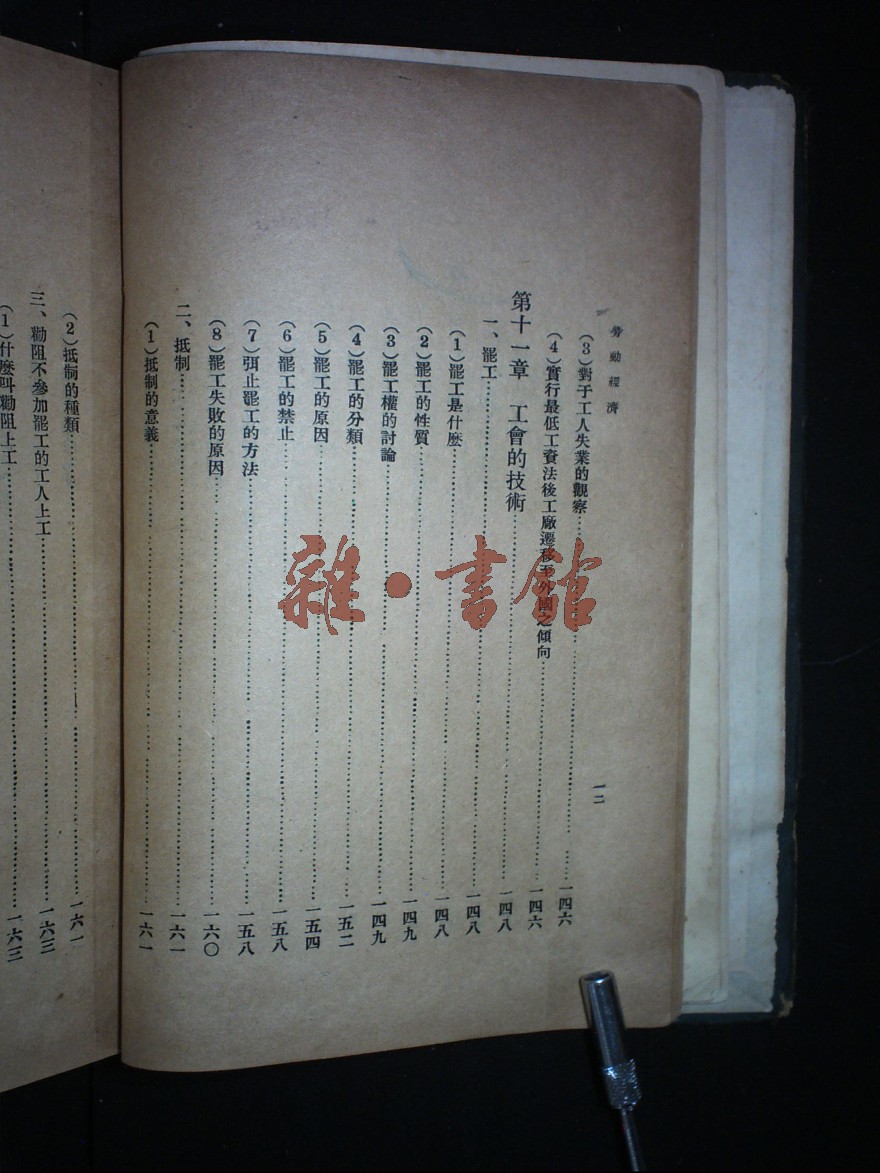 勞動經濟
一二
(3)對于工人失業的觀察……一四六
(4)實行最低工資法後工廠遷移至外國之傾向……一四六
第十一章 工會的技術……一四八
一、罷工……一四八
(1)罷工是什麼……一四八
(2)罷工的性質……一四九
(3)罷工權的討論……一四九
(4)罷工的分類……一五二
(5)罷工的原因……一五四
(6)罷工的禁止……一五八
(7)弭止罷工的方法……一五八
(8)罷工失敗的原因……一六〇
二、抵制……一六一
(1)抵制的意義……一六一
(2)抵制的種類……一六一
三、勸阻不參加罷工的工人上工……一六三
(1)什麼叫勸阻上工……一六三
雜·書館